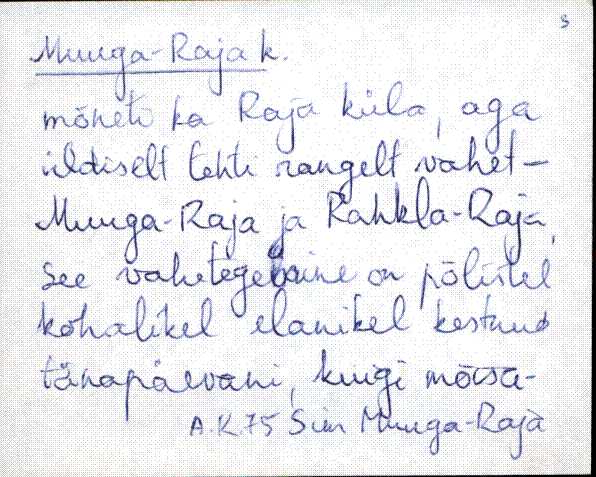 3
Muuga-Raja k.
mõneti ka Raja küla, aga
üldiselt tehti rangelt vahet –
Muuga-Raja ja Rahkla-Raja,
see vahetegemine on põlistel
kohalikel elanikel kestnud
tänapäevani, kuigi mõisa-
A.K.75 Sim Muuga-Raja